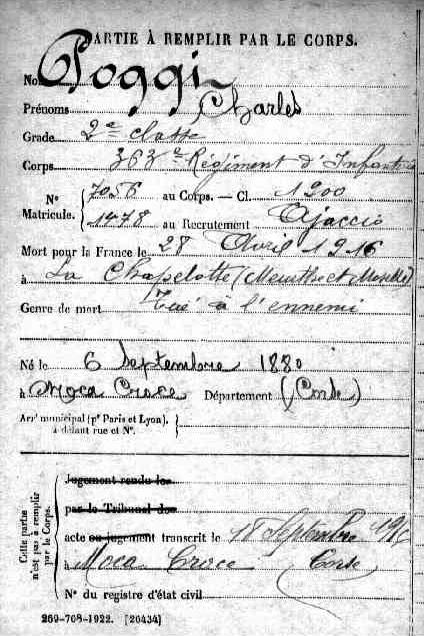 PARTIE À REMPLIR PAR LE CORPS.
Nom Poggi
Prénoms Charles
Grade 2e classe
Corps 363e Régiment d'Infanterie
N° Matricule. { 7056 au Corps. — Cl. 1900
1478 au Recrutement Ajaccio
Mort pour la France le 28 Avril 1916
à La Chapelotte (Meurthe et Moselle)
Genre de mort Tué à l'ennemi
Né le 6 Septembre 1880
à Moca Croce Département (Corse)
Arrt municipal (pr Paris et Lyon),
à défaut rue et N°. }
Cette partie n'est pas à remplir par le Corps.
Jugement rendu le
par le Tribunal de
acte ou jugement transcrit le 18 Septembre
à Moca Croce Corse
N° du registre d'état civil
269-708-1922. [26434]